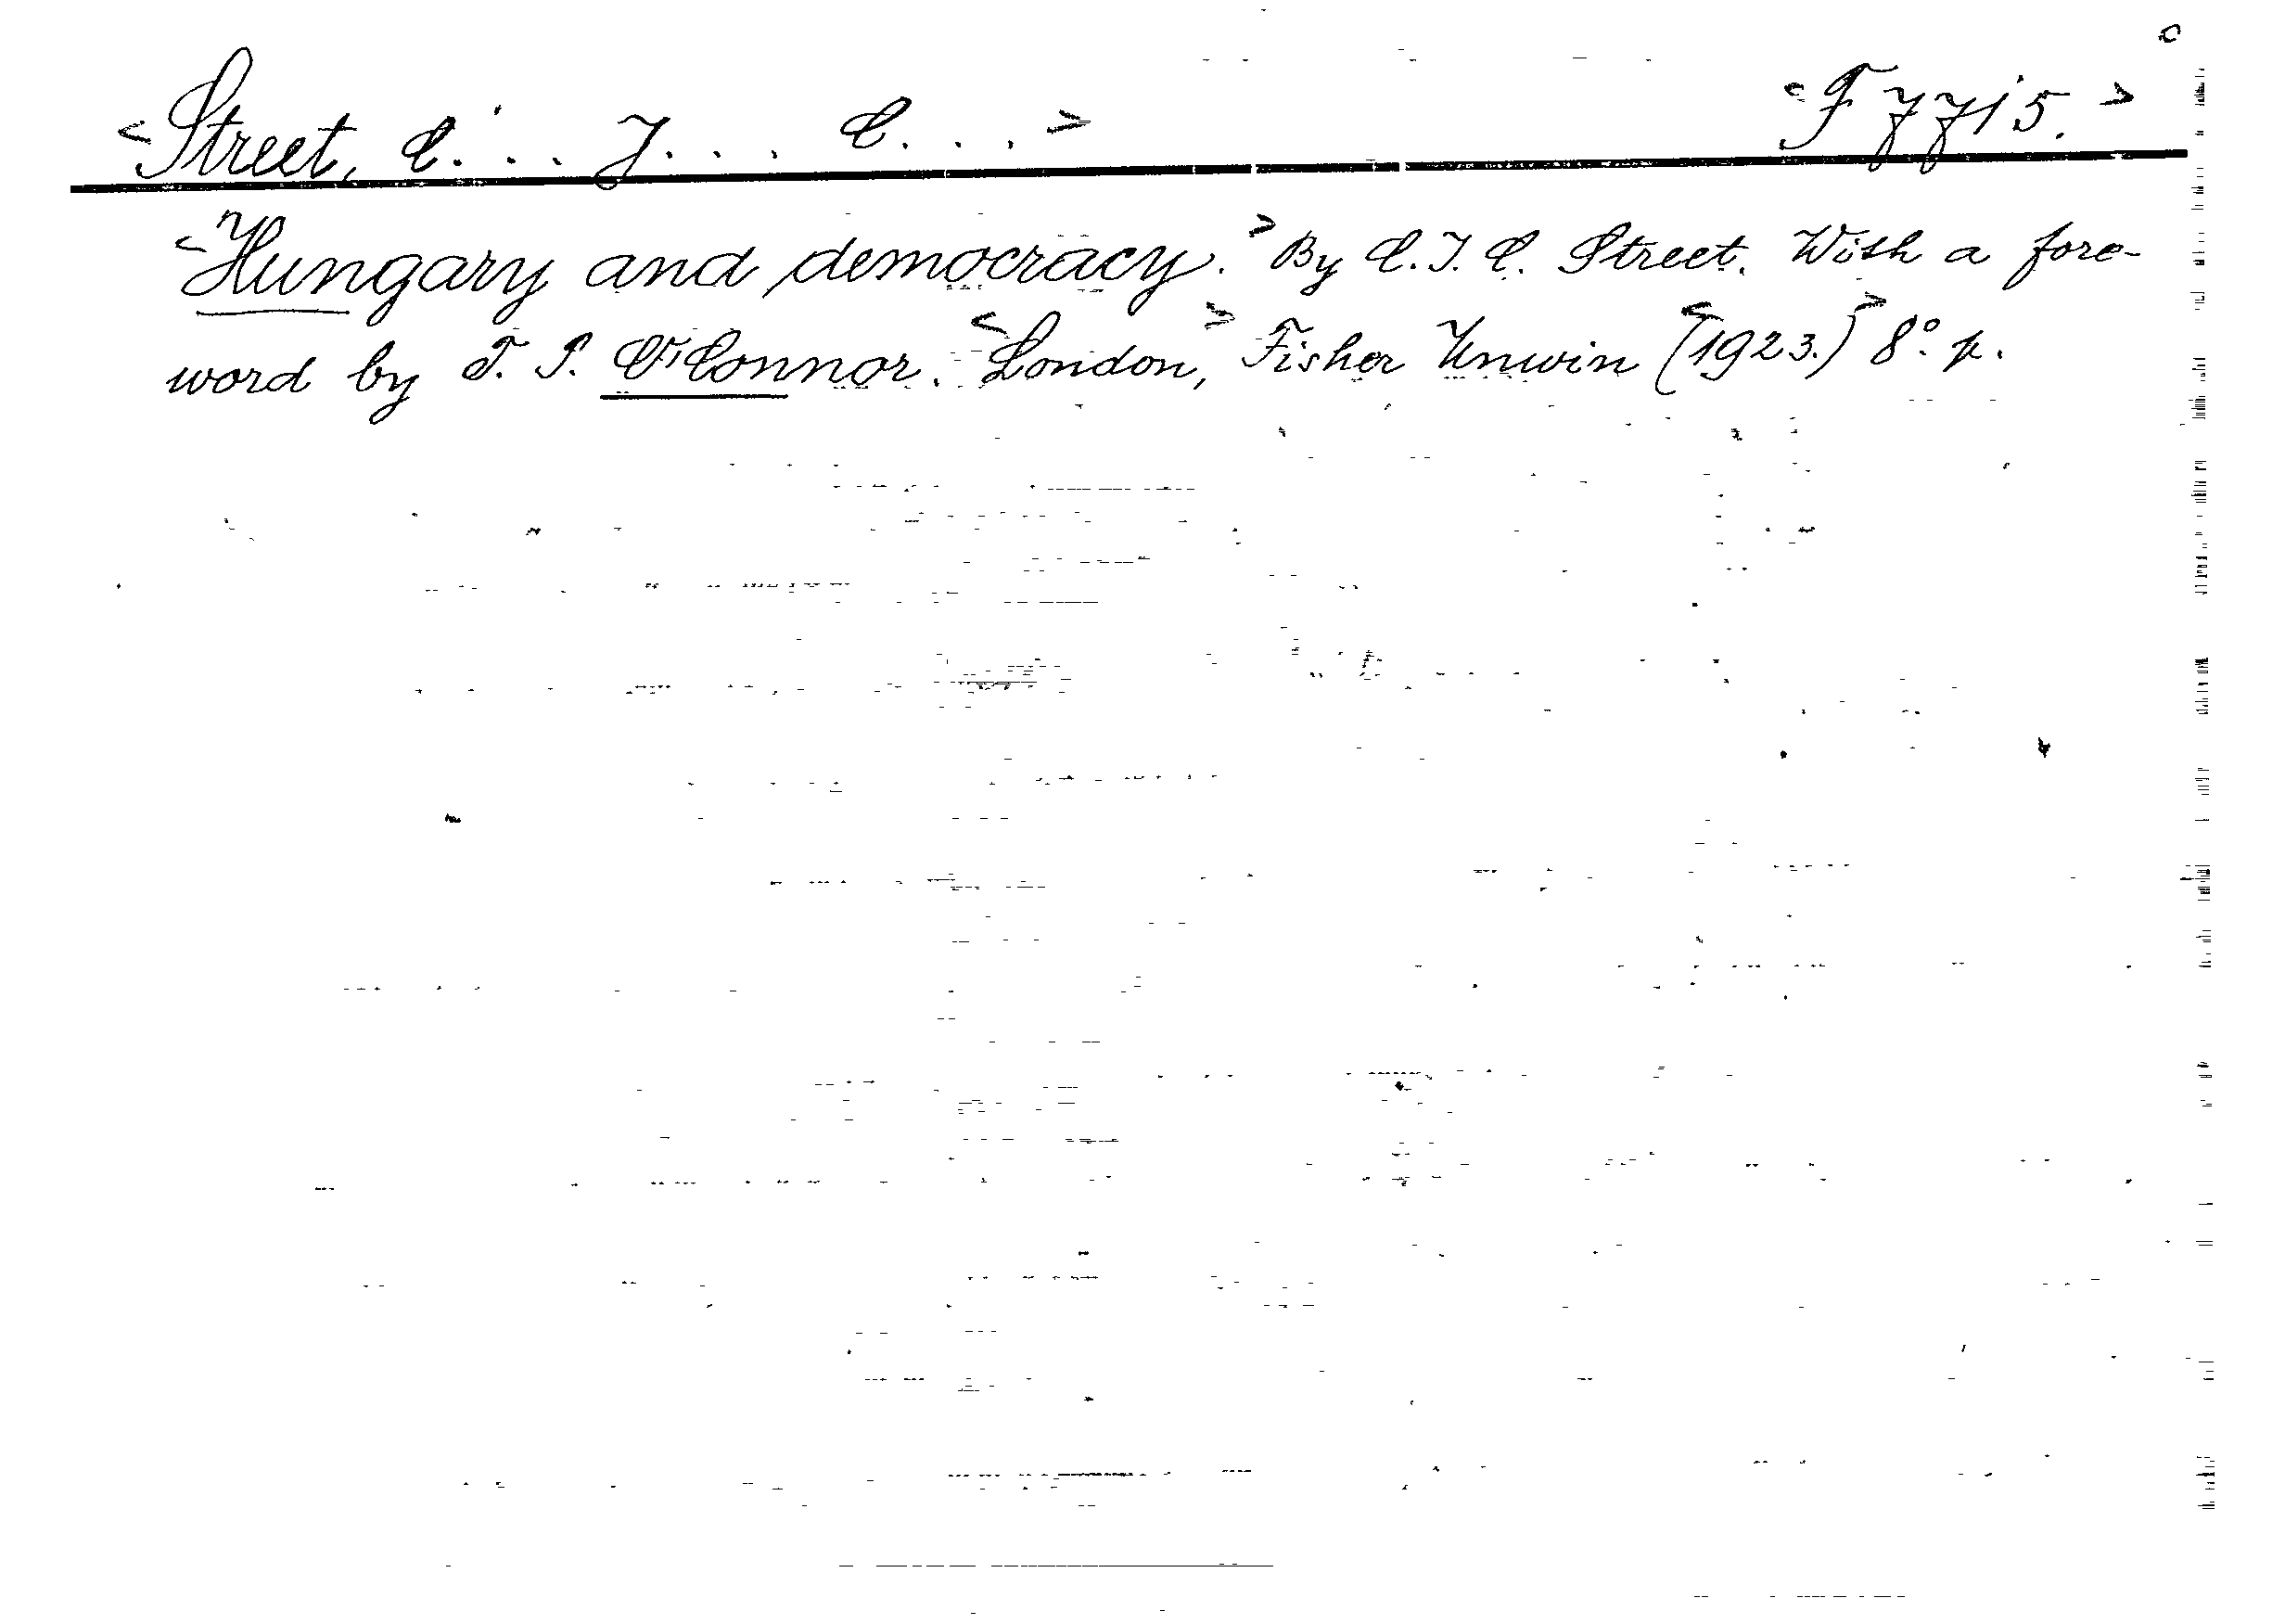 <Street, C... J... C...> <F 7715.>
<Hungary and democracy.> By C. J. C. Street. With a fore-
word by T. P. O'Connor. <London,> Fisher Unwin <(1923.)> 8° p.